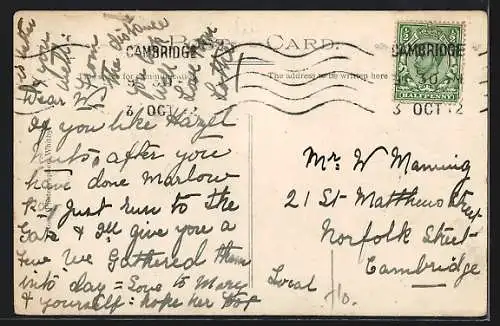 POST CARD.
The address to be written here
CAMBRIDGE
3 OCT 12
CAMBRIDGE
30 PM
3 OCT 12
HALFPENNY
Dear W
If you like Hazel
nuts, after you
have done Marlow
Rd Just run to the
Gate & I'll give you a
few We Gathered them
into day = Love to Mary
& yourself: hope her
is better
& you
from
the distance
with
Love from
Mr W Manning
21 St Matthews Street
Norfolk Street
Cambridge
Local